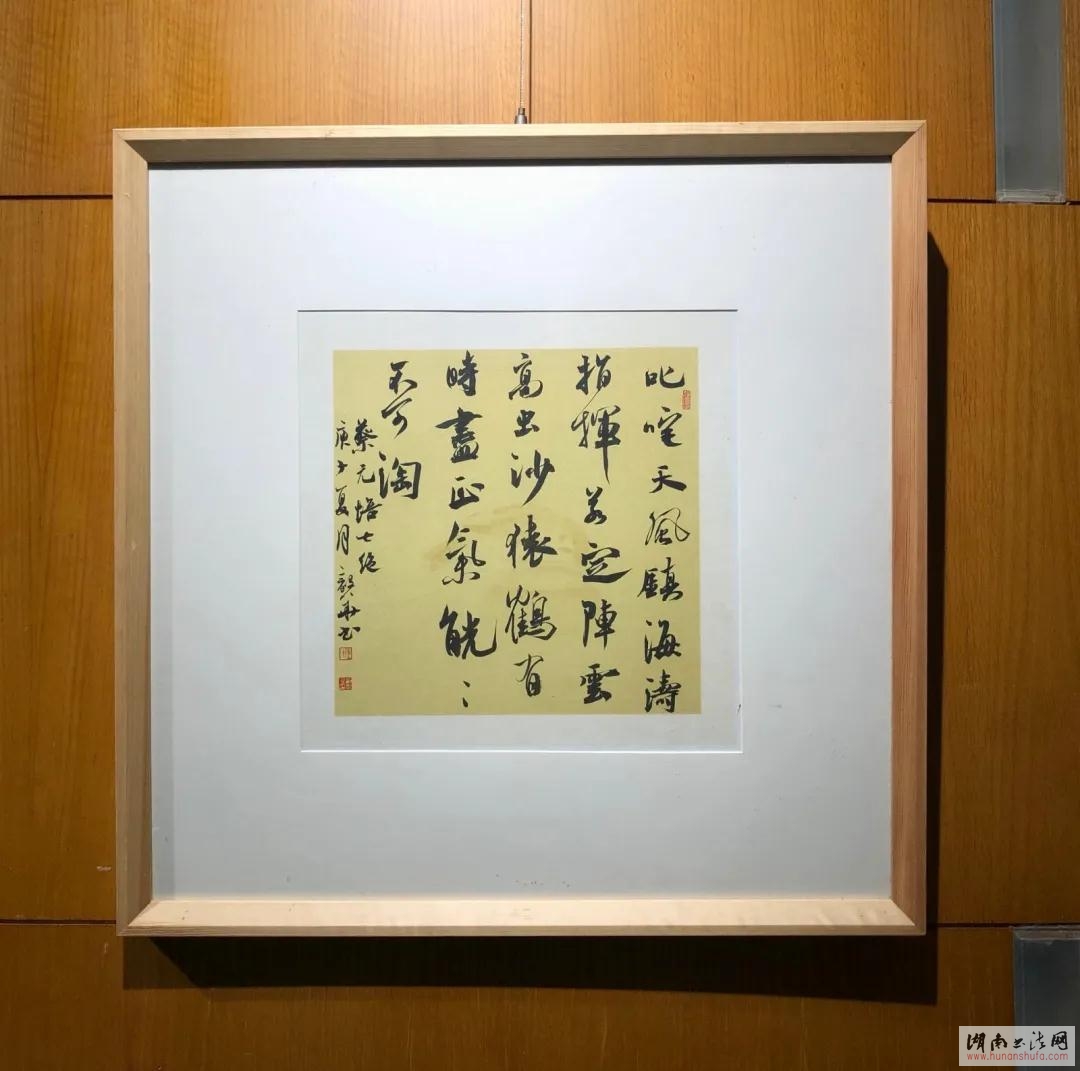 叱咤天風鎮海濤
指揮若定陣雲
高出沙猿鶴有
時盡正氣觥〻
不可淘
蔡元培七绝
庚子夏月毅華书
湖南书法网
www.hunanshufa.com